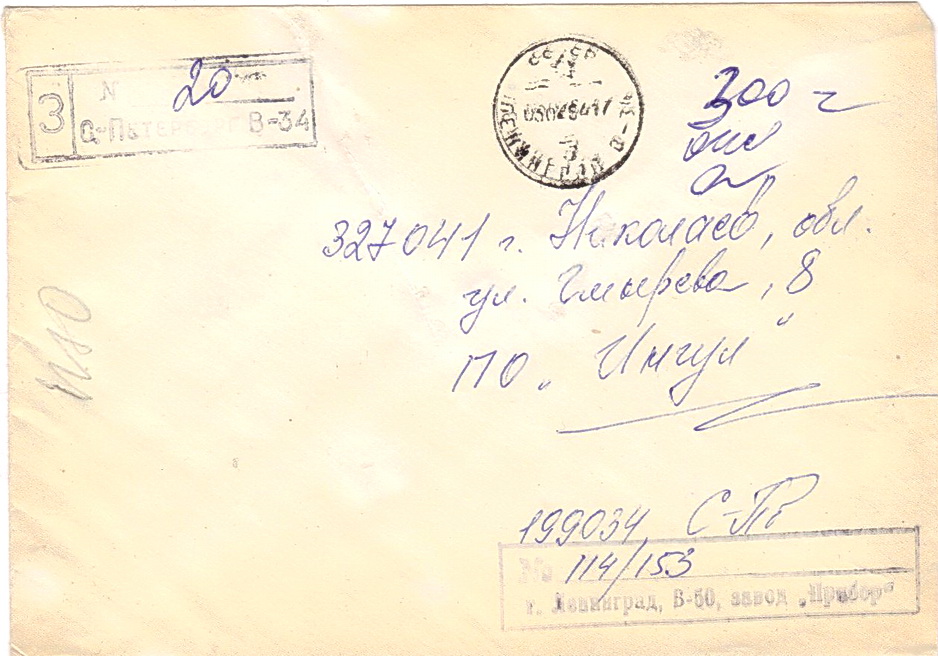 З
N 20
С-ПЕТЕРБУРГ В-34
ЛЕНИНГРАД
300 =
327041 г. Николаев, обл.
ул. Чмырева, 8
ПО „Ингул“
199034, С-Пб
No 114/153
г. Ленинград, В-50, завод „Прибор“